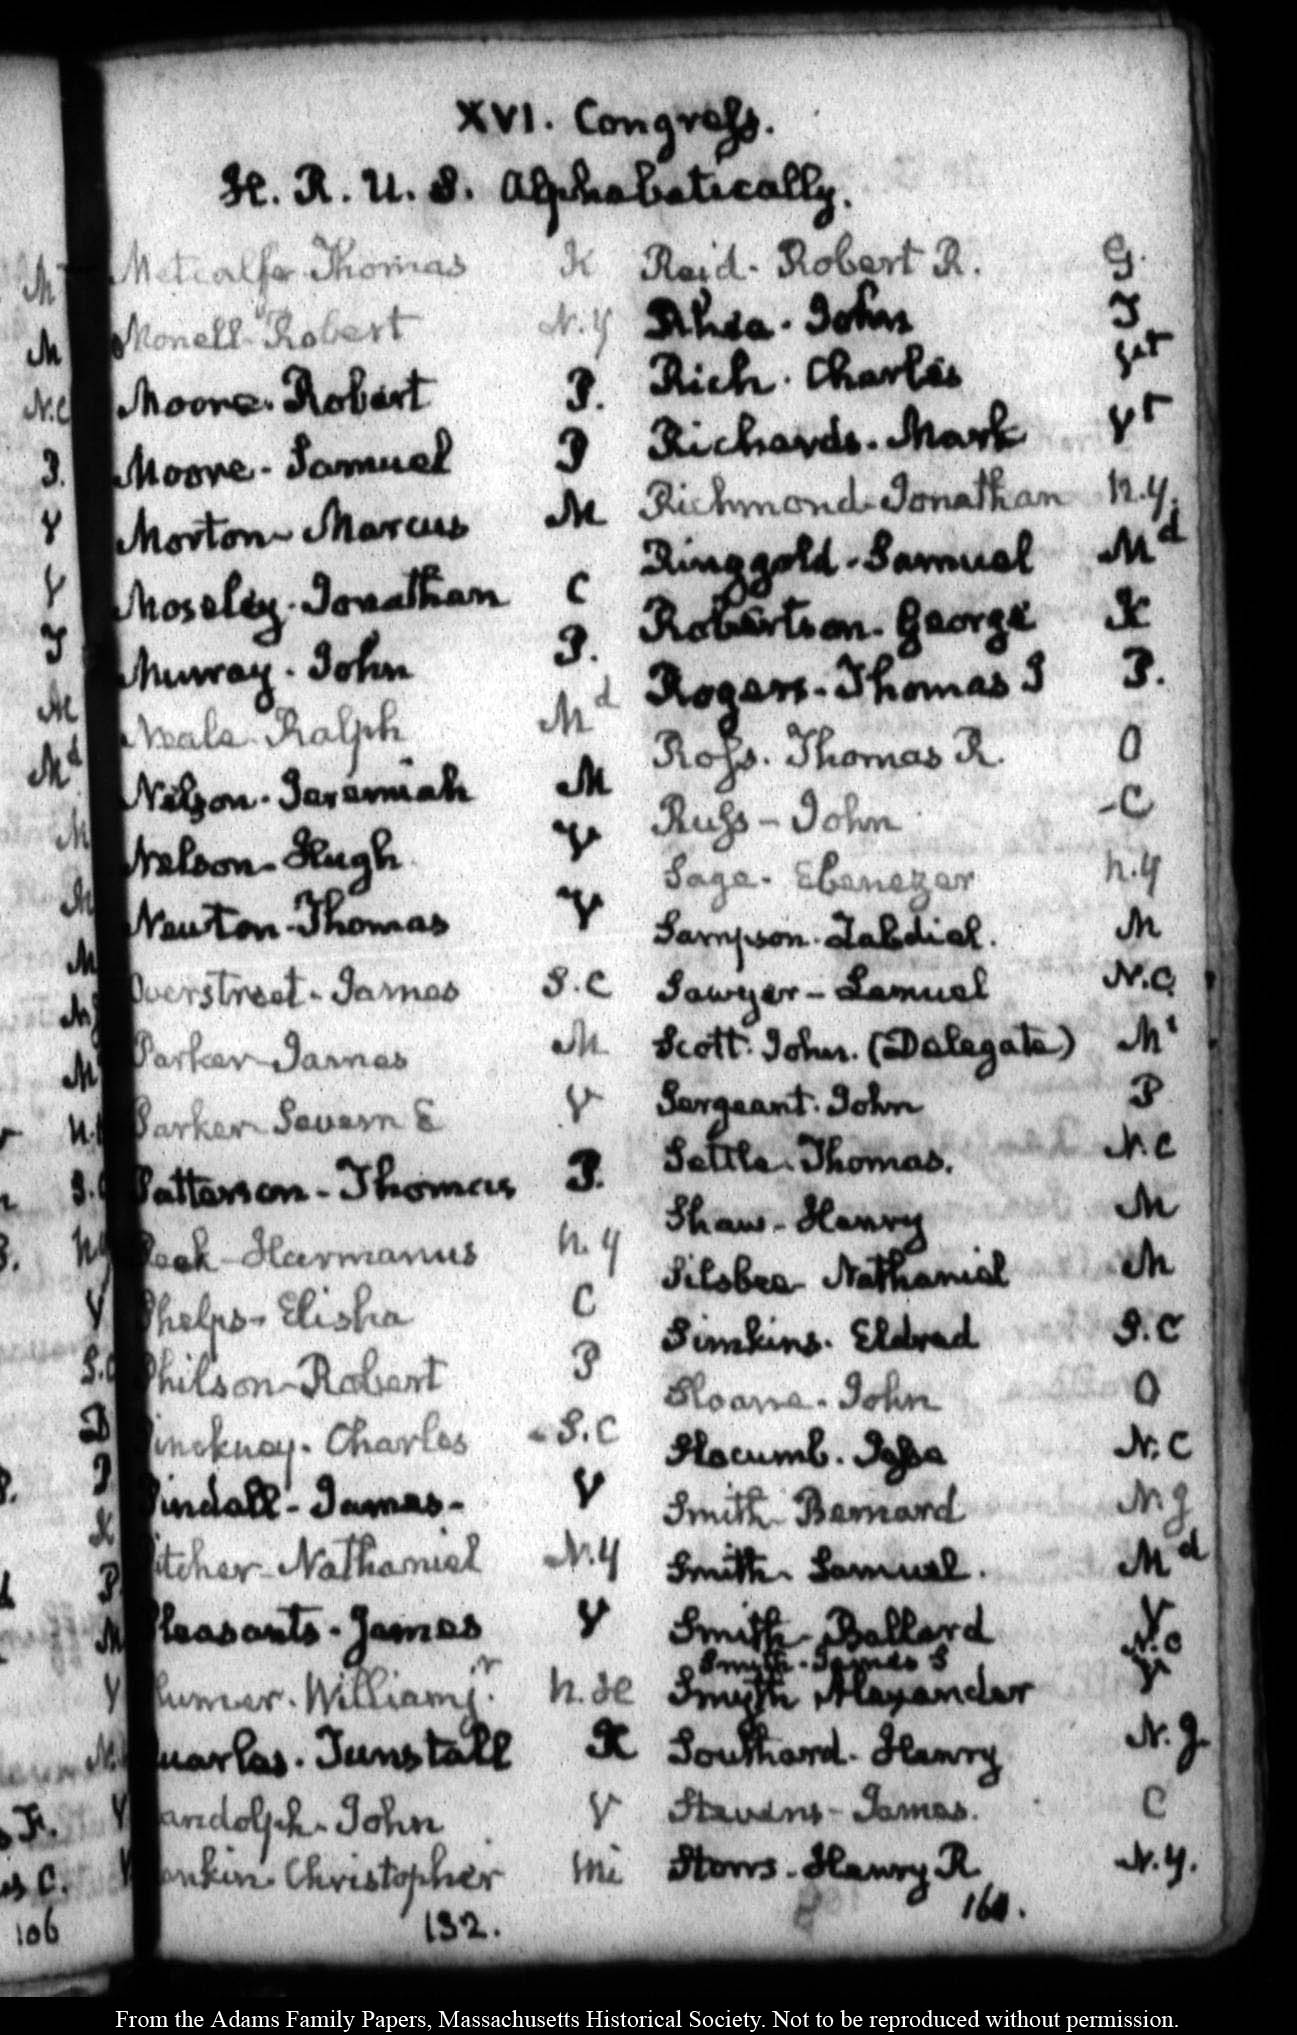 XVI. Congress.
H. R. U. S. Alphabetically.
Metcalfe Thomas K
Monell Robert N.Y
Moore. Robert P.
Moore - Samuel P
Morton - Marcus M
Moseley. Jonathan C
Murray. John P.
Neale Ralph Md
Nelson. Jeremiah M
Nelson - Hugh V
Newton - Thomas V
Overstreet. James S.C
Parker James M
Parker Severn E V
Patterson - Thomas P.
Peek - Harmanus N.Y
Phelps - Elisha C
Philson - Robert P
Pinckney. Charles - S.C
Pindall - James - V
Pitcher - Nathaniel N.Y
Pleasants - James V
Plumer. William jr. N.H
Quarles. Tunstall K
Randolph - John V
Rankin. Christopher Mi
132.
Reid - Robert R. G.
Rhea - John T
Rich. Charles Vt
Richards. Mark Vt
Richmond. Jonathan N.Y.
Ringgold. Samuel Md
Robertson. George K
Rogers - Thomas J P.
Ross. Thomas R. O
Russ - John - C
Sage. Ebenezer N.Y
Sampson. Zabdiel. M
Sawyer - Lemuel N.C.
Scott. John. (Delegate) Mi
Sergeant. John P
Settle. Thomas. N.C
Shaw - Henry M
Silsbee - Nathaniel M
Simkins. Eldred S.C
Sloane. John O
Slocumb. Jesse N.C
Smith Bernard N.J
Smith. Samuel. Md
Smith Ballard V
Smith. James S N.C
Smyth Alexander V
Southard. Henry N.J.
Stevens - James. C
Storrs - Henry R N.Y.
160.
M
M
N.C
P.
V
V
T
M
Md
M
M
M
M
V
S.C
D
P
K
P
M
V
V
s F.
is C.
106
From the Adams Family Papers, Massachusetts Historical Society. Not to be reproduced without permission.